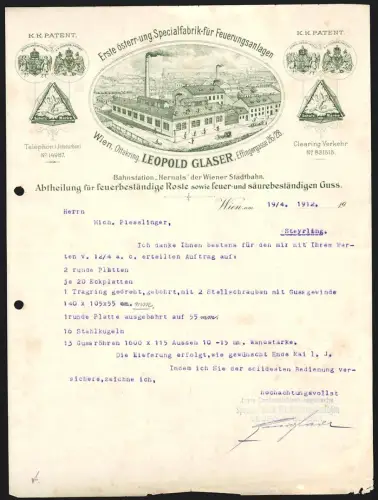 K.K. PATENT.
K.K. PATENT.
Erste österr-ung. Specialfabrik für Feuerungsanlagen
Wien, Ottakring, LEOPOLD GLASER, Effingergasse 26/28.
Telephon (Interurban)
Nº 14297.
Clearing Verkehr
Nº 821515.
Bahnstation „Hernals" der Wiener Stadtbahn.
Abtheilung für feuerbeständige Roste sowie feuer- und säurebeständigen Guss.
Wien, am 19/4. 1912. 19
Herrn
Mich. Piesslinger,
Steyrling.
Ich danke Ihnen bestens für den mir mit Ihrem Wer-
ten v. 12/4 a. c. erteilten Auftrag auf:
2 runde Platten
je 20 Eckplatten
1 Tragring gedreht, gebohrt, mit 2 Stellschrauben mit Gussgewinde
140 x 105x55 mm.
1runde Platte ausgebohrt auf 55
16 Stahlkugeln
13 Gussröhren 1600 x 115 Aussen 10 -15 mm. Wandstärke.
Die Lieferung erfolgt, wie gewünscht Ende Mai l. J.
Indem ich Sie der solidesten Bedienung ver-
sichere, zeichne ich,
hochachtungsvollst